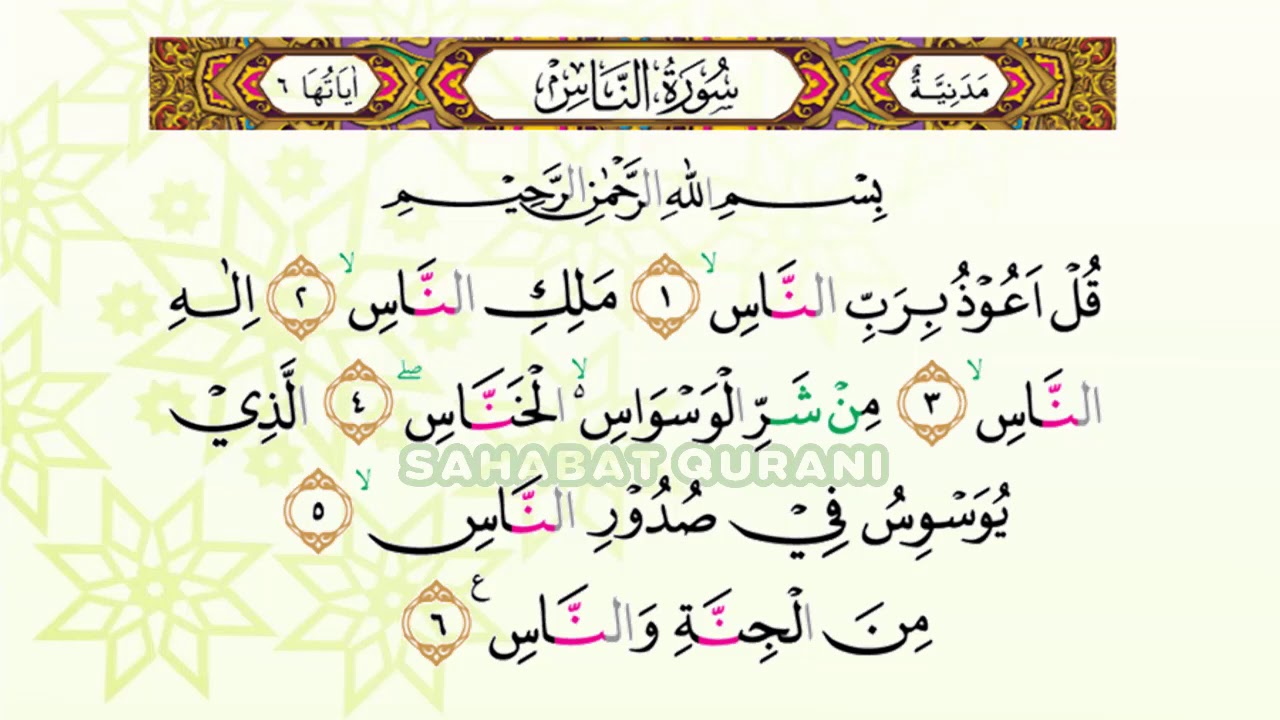 مَدَنِيَّةٌ سُوْرَةُ النَّاسِ اٰيَاتُهَا ٦
بِسْمِ اللّٰهِ الرَّحْمٰنِ الرَّحِيْمِ
قُلْ اَعُوْذُ بِرَبِّ النَّاسِۙ ١ مَلِكِ النَّاسِۙ ٢ اِلٰهِ
النَّاسِۙ ٣ مِنْ شَرِّ الْوَسْوَاسِ ەۙ الْخَنَّاسِۖ ٤ الَّذِيْ
يُوَسْوِسُ فِيْ صُدُوْرِ النَّاسِۙ ٥
مِنَ الْجِنَّةِ وَالنَّاسِ ࣖ ٦
SAHABAT QURANI